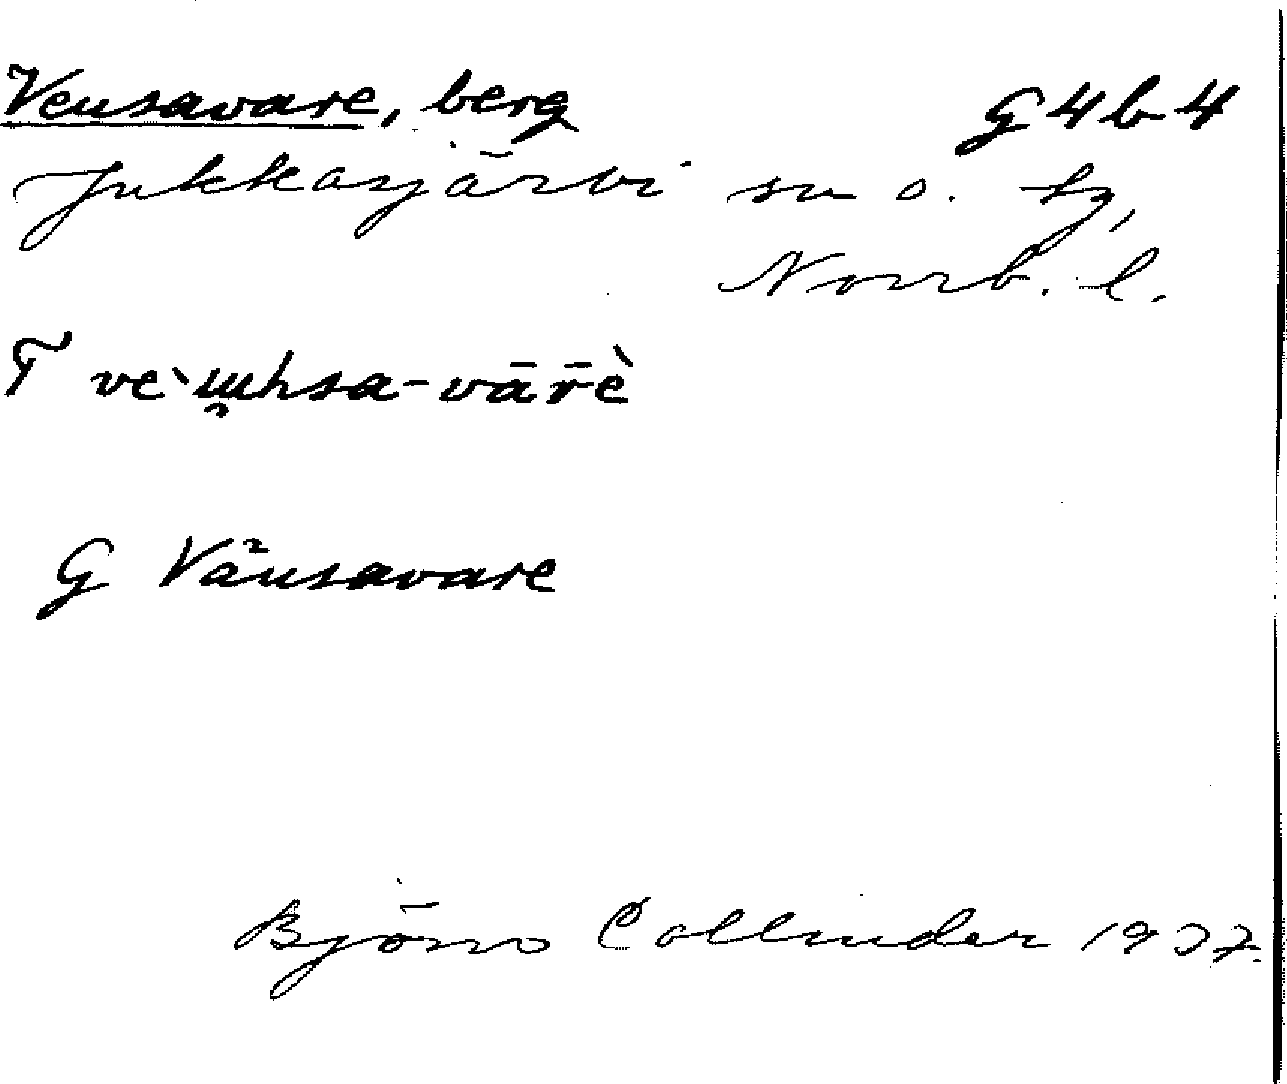 Veusavare, berg G4b4
Jukkasjärvi sn o. tg,
Norrb. l.
T
G Väusavare
Björn Collinder 1937.